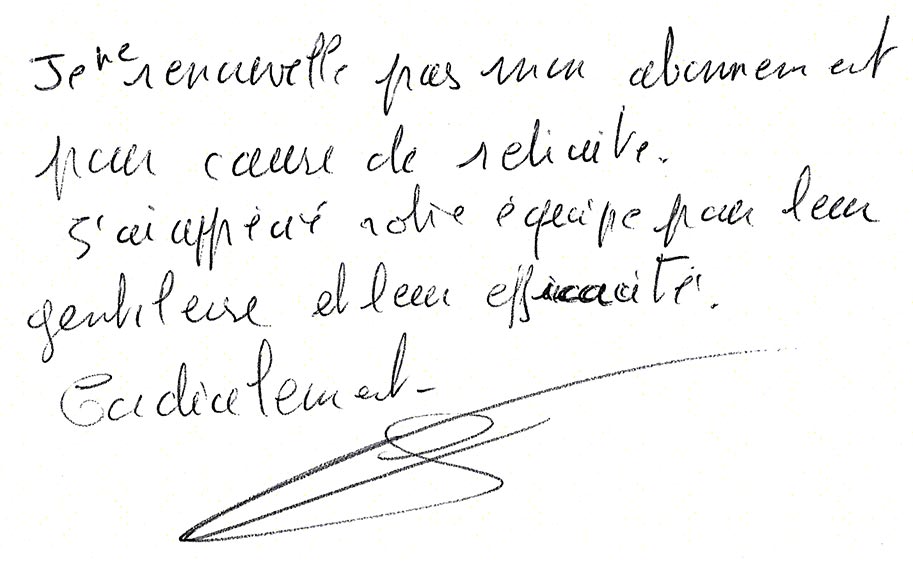 Je ne renouvelle pas mon abonnement
pour cause de retraite.
J'ai apprécié votre équipe pour leur
gentillesse et leur efficacité.
Cordialement -